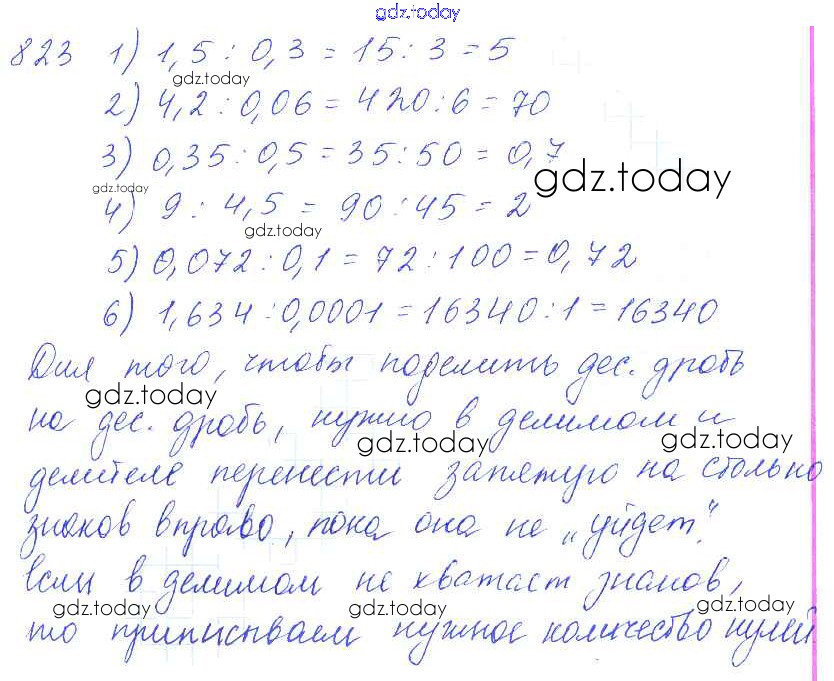 gdz.today
823 1) 1,5 : 0,3 = 15 : 3 = 5
gdz.today
2) 4,2 : 0,06 = 420 : 6 = 70
3) 0,35 : 0,5 = 35 : 50 = 0,7
gdz.today
gdz.today
4) 9 : 4,5 = 90 : 45 = 2
gdz.today
5) 0,072 : 0,1 = 72 : 100 = 0,72
6) 1,634 : 0,0001 = 16340 : 1 = 16340
Для того, чтобы поделить дес. дробь
gdz.today
на дес. дробь, нужно в делимом и
gdz.today
gdz.today
делителе перенести запятую на столько
знаков вправо, пока она не „уйдет".
если в делимом не хватает знаков,
gdz.today
gdz.today
gdz.today
то приписываем нужное количество нулей